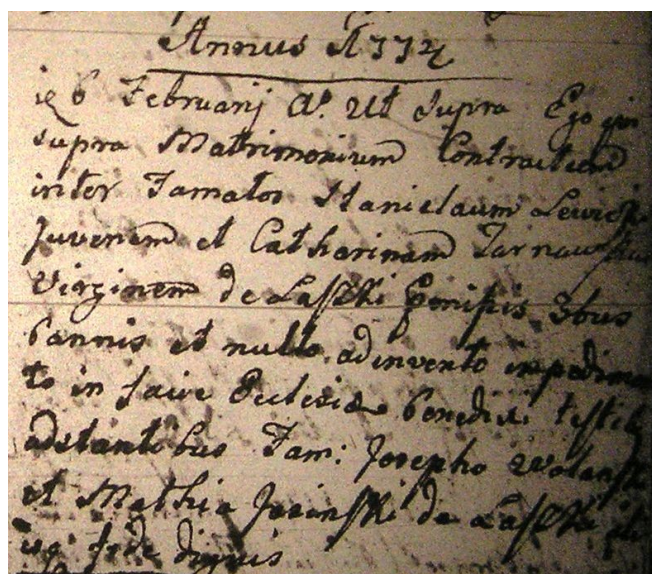 Annus 1772
6 Februarij Aº. Ut Supra Ego qui
supra Matrimonium Contractum
inter Famatos Stanislaum
Juvenem et Catharinam
Virginem de Laszki 3bus
bannis et nullo adinvento impedimen
to in facie Ecclesiae benedixi testib
adstantibus Fam: Josepho Wolanski
et Mathia de Laszki
fide dignis